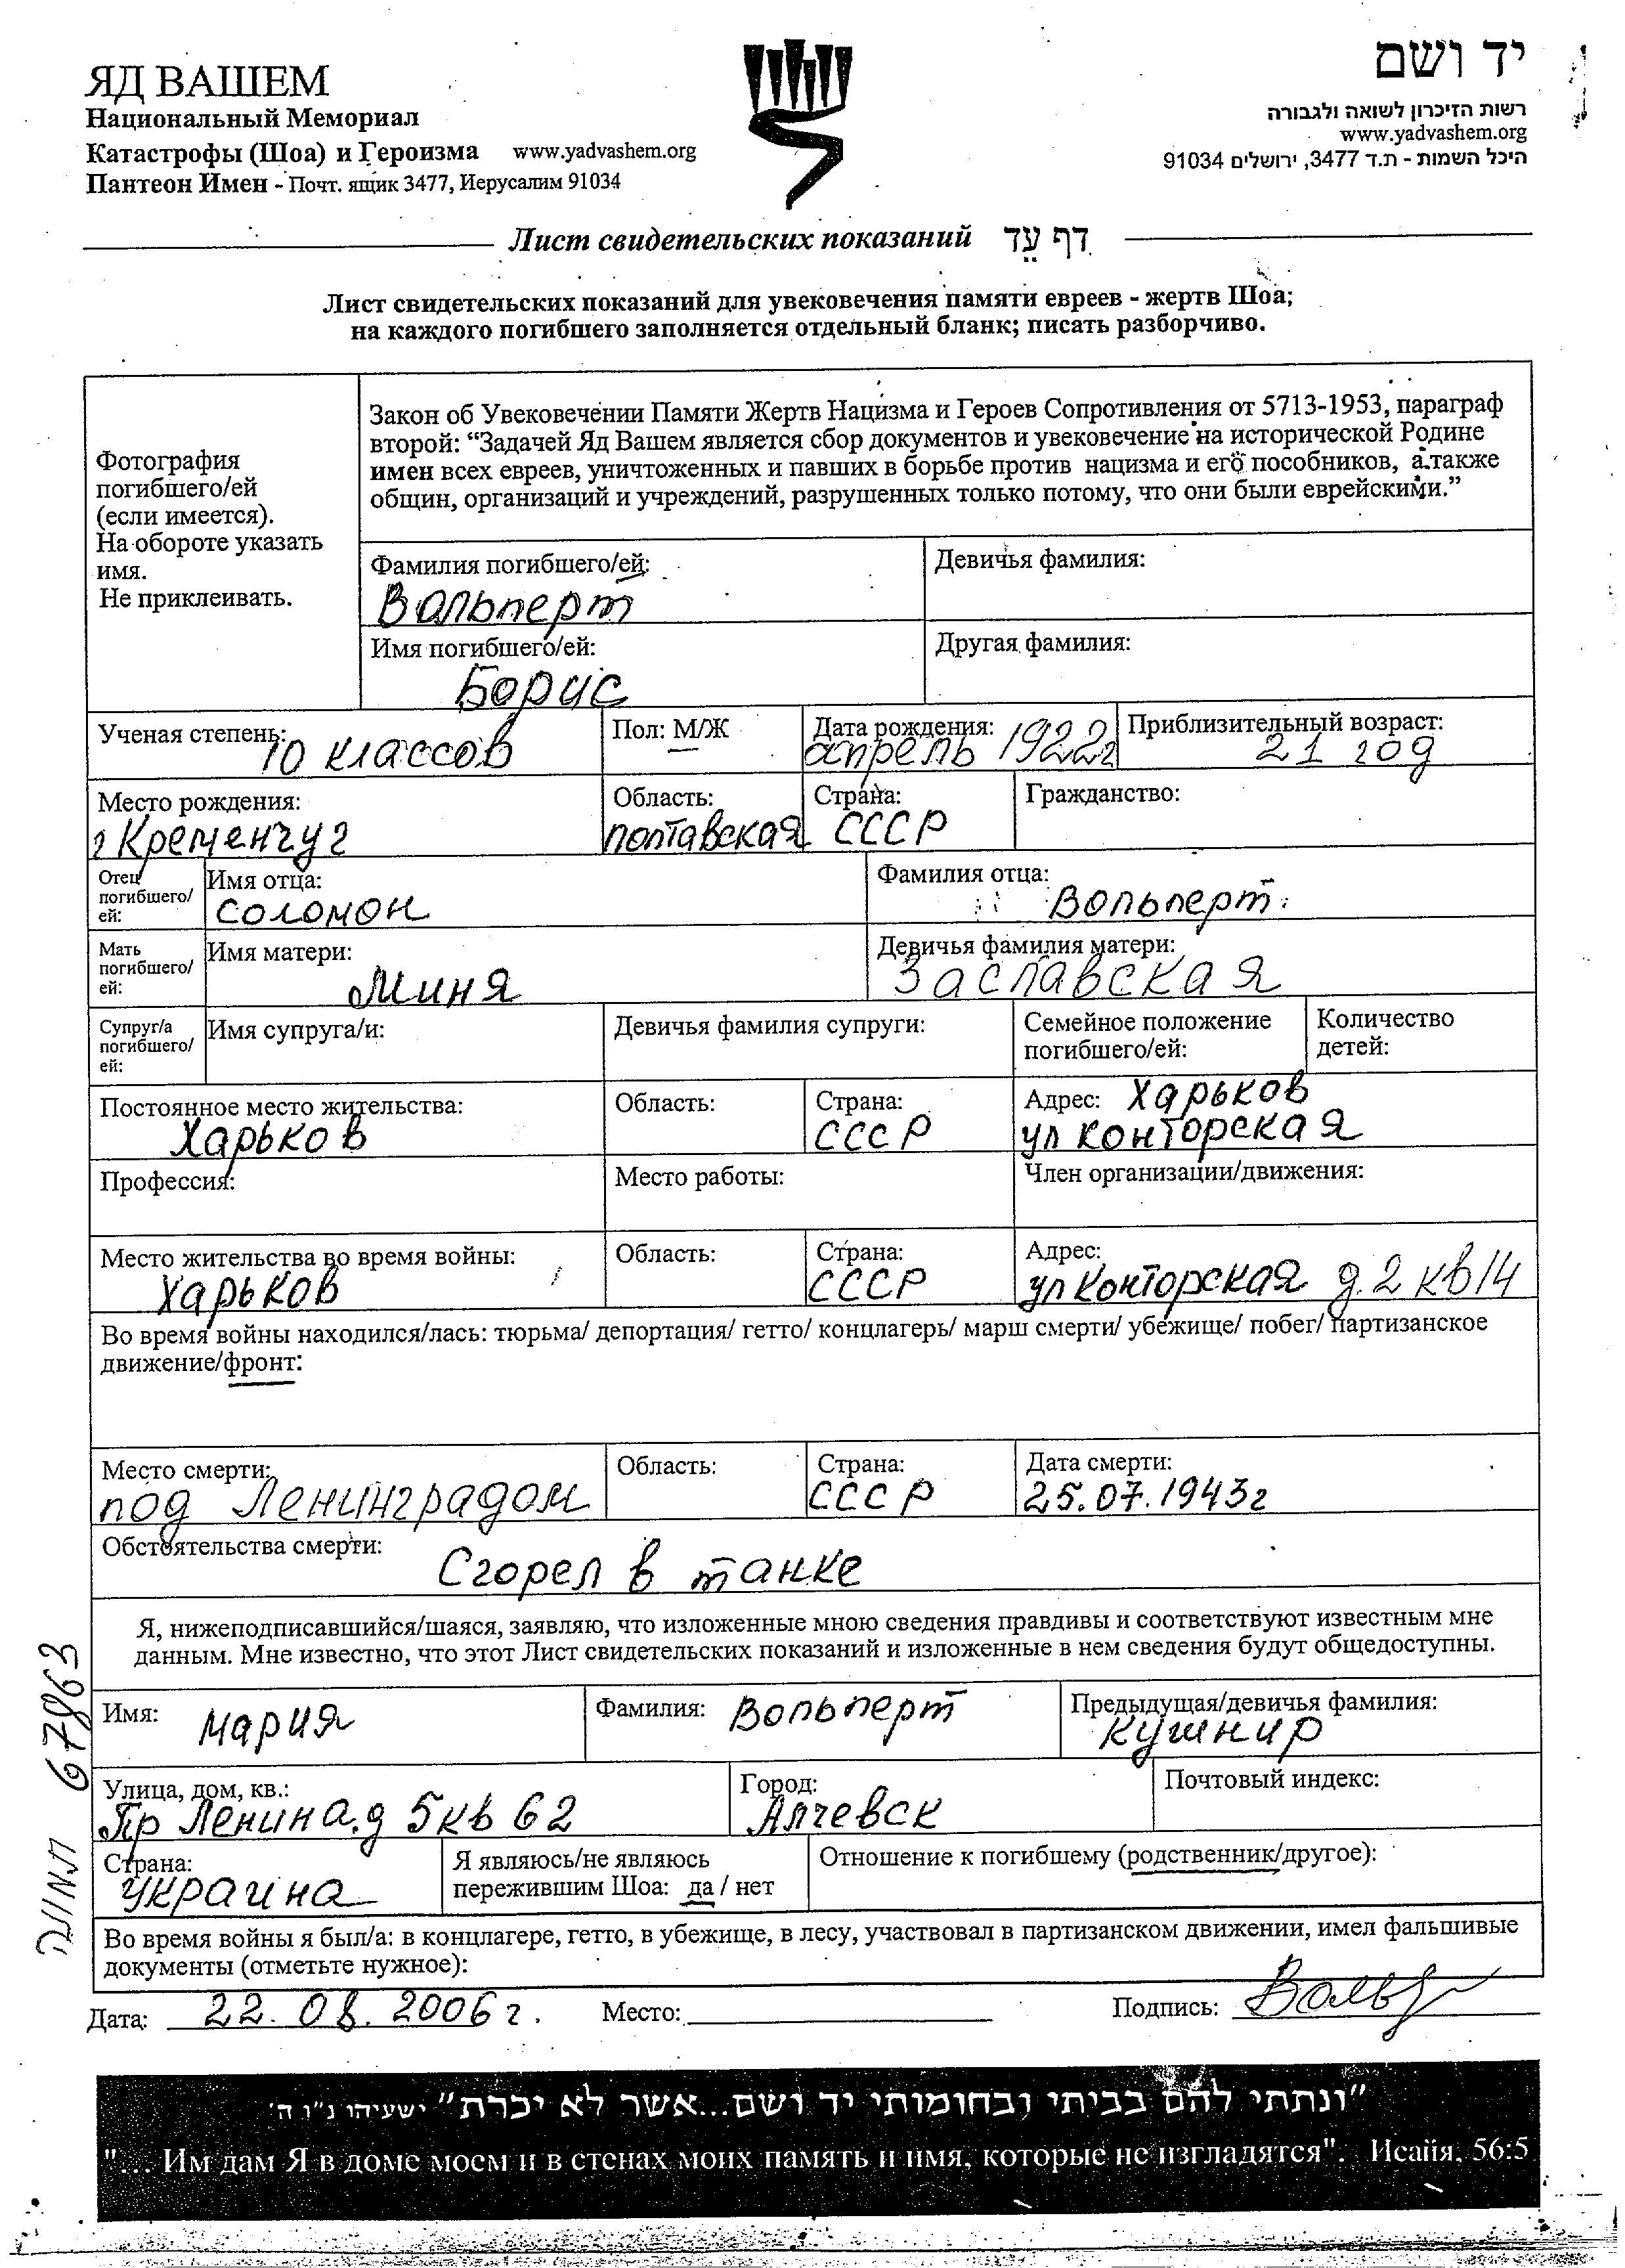 ЯД ВАШЕМ
Национальный Мемориал
Катастрофы (Шоа) и Героизма www.yadvashem.org
Пантеон Имен - Почт. ящик 3477, Иерусалим 91034
יד ושם
רשות הזיכרון לשואה ולגבורה
www.yadvashem.org
היכל השמות - ת.ד 3477, ירושלים 91034
Лист свидетельских показаний דף עֵד
Лист свидетельских показаний для увековечения памяти евреев - жертв Шоа;
на каждого погибшего заполняется отдельный бланк; писать разборчиво.
Фотография
погибшего/ей
(если имеется).
На обороте указать
имя.
Не приклеивать.
Закон об Увековечении Памяти Жертв Нацизма и Героев Сопротивления от 5713-1953, параграф
второй: “Задачей Яд Вашем является сбор документов и увековечение на исторической Родине
имен всех евреев, уничтоженных и павших в борьбе против нацизма и его пособников, а также
общин, организаций и учреждений, разрушенных только потому, что они были еврейскими.”
Фамилия погибшего/ей: Девичья фамилия:
Вольперт
Имя погибшего/ей: Другая фамилия:
Борис
Ученая степень: Пол: М/Ж Дата рождения: Приблизительный возраст:
10 классов апрель 1922г 21 год
Место рождения: Область: Страна: Гражданство:
г Кременчуг полтавская СССР
Отец
погибшего/
ей:
Имя отца: Фамилия отца:
Соломон Вольперт
Мать
погибшего/
ей:
Имя матери: Девичья фамилия матери:
Миня Заславская
Супруг/а
погибшего/
ей:
Имя супруга/и: Девичья фамилия супруги: Семейное положение
погибшего/ей:
Количество
детей:
Постоянное место жительства: Область: Страна: Адрес: Харьков
Харьков СССР ул Конторская
Профессия: Место работы: Член организации/движения:
Место жительства во время войны: Область: Страна: Адрес:
Харьков СССР ул Конторская д.2 кв 14
Во время войны находился/лась: тюрьма/ депортация/ гетто/ концлагерь/ марш смерти/ убежище/ побег/ партизанское
движение/фронт:
Место смерти: Область: Страна: Дата смерти:
под Ленинградом СССР 25.07.1943г
Обстоятельства смерти:
Сгорел в танке
Я, нижеподписавшийся/шаяся, заявляю, что изложенные мною сведения правдивы и соответствуют известным мне
данным. Мне известно, что этот Лист свидетельских показаний и изложенные в нем сведения будут общедоступны.
Имя: Мария Фамилия: Вольперт Предыдущая/девичья фамилия:
Кушнир
Улица, дом, кв.: Город: Почтовый индекс:
Пр Ленина.д 5 кв 62 Алчевск
Страна: Я являюсь/не являюсь Отношение к погибшему (родственник/другое):
Украина пережившим Шоа: да / нет
Во время войны я был/а: в концлагере, гетто, в убежище, в лесу, участвовал в партизанском движении, имел фальшивые
документы (отметьте нужное):
Дата: 22.08.2006г. Место: Подпись:
67863
"ונתתי להם בביתי ובחומותי יד ושם...אשר לא יכרת" ישעיהו נ"ו ה'
"... Им дам Я в доме моем и в стенах моих память и имя, которые не изгладятся". Исайя, 56:5